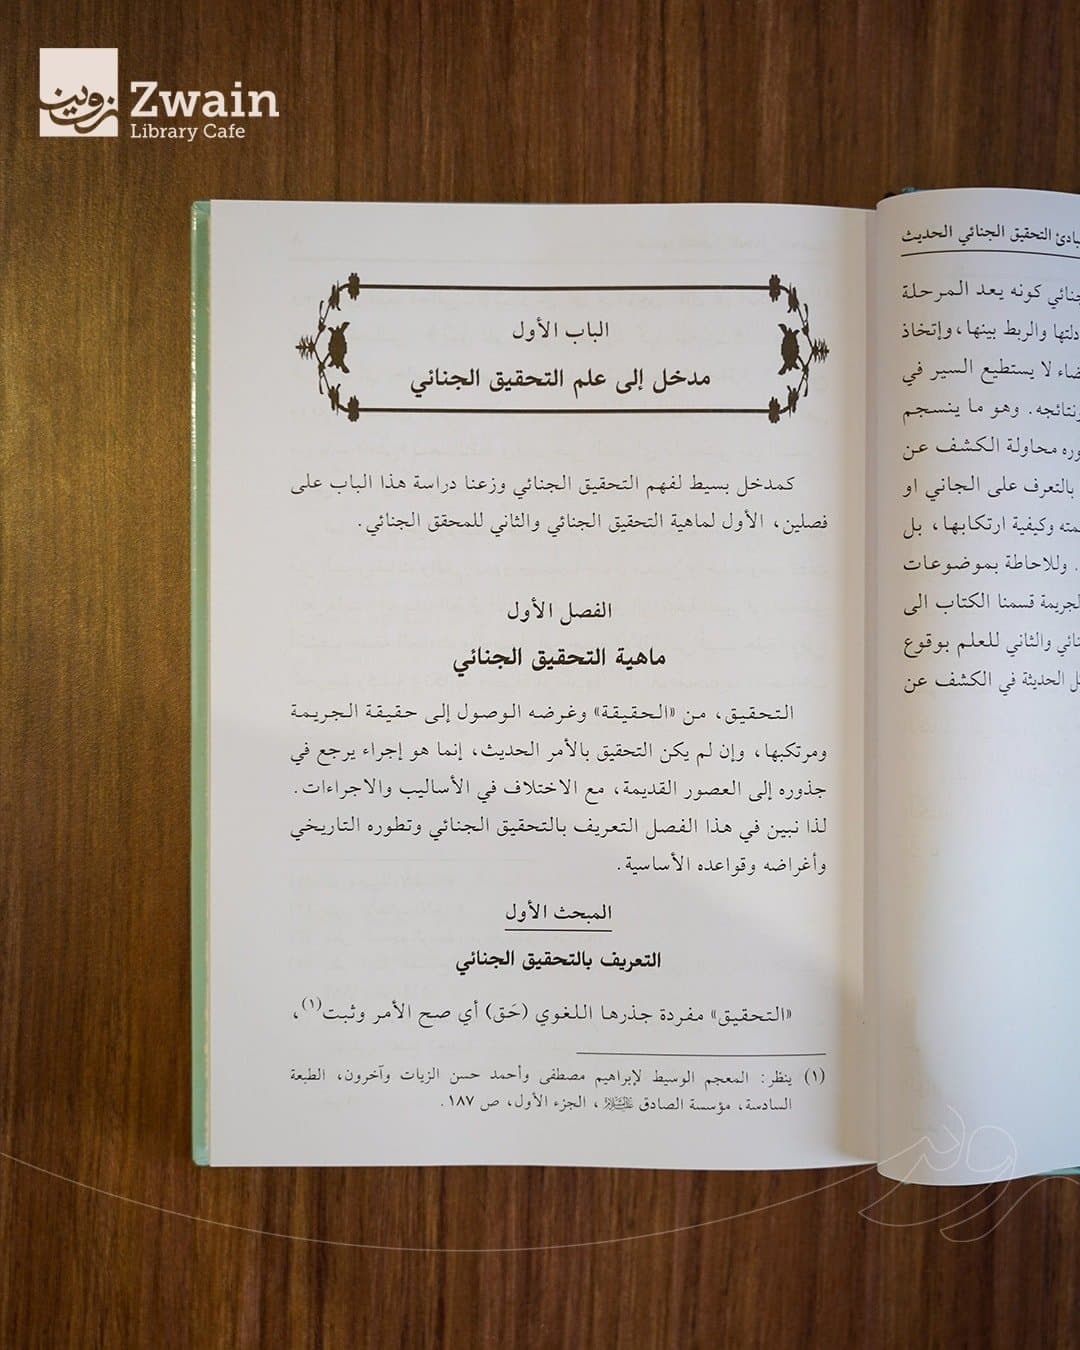 زوين
Zwain
Library Cafe
التحقيق الجنائي الحديث
كونه يعد المرحلة
والربط بينها، وإتخاذ
لا يستطيع السير في
وهو ما ينسجم
محاولة الكشف عن
بالتعرف على الجاني او
وكيفية ارتكابها، بل
. وللاحاطة بموضوعات
قسمنا الكتاب الى
والثاني للعلم بوقوع
الحديثة في الكشف عن
الباب الأول
مدخل إلى علم التحقيق الجنائي
كمدخل بسيط لفهم التحقيق الجنائي وزعنا دراسة هذا الباب على
فصلين، الأول لماهية التحقيق الجنائي والثاني للمحقق الجنائي.
الفصل الأول
ماهية التحقيق الجنائي
التحقيق، من «الحقيقة» وغرضه الوصول إلى حقيقة الجريمة
ومرتكبها، وإن لم يكن التحقيق بالأمر الحديث، إنما هو إجراء يرجع في
جذوره إلى العصور القديمة، مع الاختلاف في الأساليب والاجراءات.
لذا نبين في هذا الفصل التعريف بالتحقيق الجنائي وتطوره التاريخي
وأغراضه وقواعده الأساسية.
المبحث الأول
التعريف بالتحقيق الجنائي
«التحقيق» مفردة جذرها اللغوي (حَق) أي صح الأمر وثبت(١)،
(١) ينظر: المعجم الوسيط لإبراهيم مصطفى وأحمد حسن الزيات وآخرون، الطبعة
السادسة، مؤسسة الصادق ، الجزء الأول، ص ١٨٧.